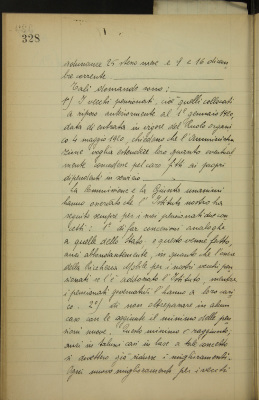 328
adunanze 25 stesso mese e 9 e 16 dicem
bre corrente
Tali domande sono:
1º) I vecchi pensionati, cioè quelli collocati
a riposo anteriormente al 1º gennaio 1920,
data di entrata in vigore del Ruolo organi
co 4 maggio 1920, chiedono che l'Amministra
zione voglia estendere loro quanto eventual
mente concederà pel caro fitti ai propri
dipendenti in servizio
La Commissione e la Giunta unanimi
hanno osservato che l'Istituto nostro ha
seguito sempre per i suoi pensionati due con
cetti: 1º di far concessioni analoghe
a quelle dello Stato, e questo venne fatto,
anzi abbondantemente, in quanto che l'onere
della Ricchezza Mobile per i nostri vecchi pen
sionati se l'è addossato l'Istituto, mentre
i pensionati governativi l'hanno a loro cari
co. 2º) di non oltrepassare in alcun
caso con le aggiunte il minimo delle pen
sioni nuove. Questo minimo è raggiunto,
anzi in taluni casi in base a tale concetto
si dovettero già ridurre i miglioramenti.
Ogni nuovo miglioramento per i vecchi